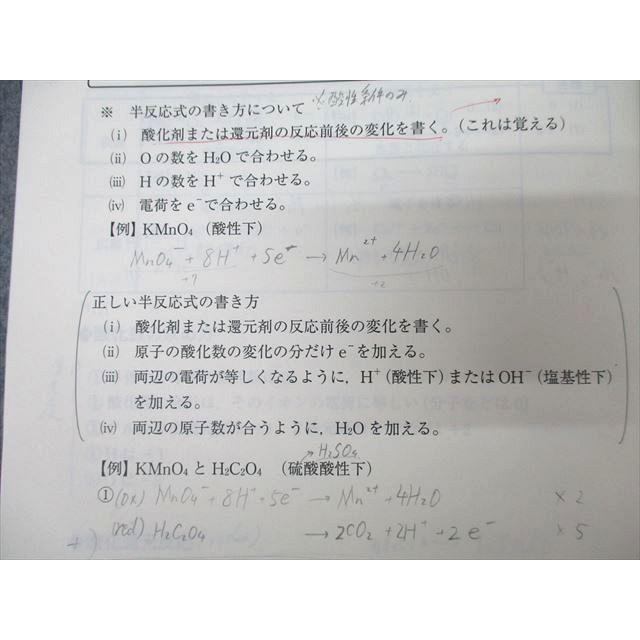 ※酸性条件のみ
※ 半反応式の書き方について
(i) 酸化剤または還元剤の反応前後の変化を書く。(これは覚える)
(ii) Oの数をH₂Oで合わせる。
(iii) Hの数をH⁺で合わせる。
(iv) 電荷をe⁻で合わせる。
【例】KMnO₄ (酸性下)
MnO₄⁻ + 8H⁺ + 5e⁻ → Mn²⁺ + 4H₂O
+7 +2
正しい半反応式の書き方
(i) 酸化剤または還元剤の反応前後の変化を書く。
(ii) 原子の酸化数の変化の分だけe⁻を加える。
(iii) 両辺の電荷が等しくなるように, H⁺(酸性下)またはOH⁻(塩基性下)
を加える。
(iv) 両辺の原子数が合うように, H₂Oを加える。
H₂SO₄
【例】KMnO₄とH₂C₂O₄ (硫酸酸性下)
①(ox) MnO₄⁻ + 8H⁺ + 5e⁻ → Mn²⁺ + 4H₂O ×2
+) (red) H₂C₂O₄ → 2CO₂ + 2H⁺ + 2e⁻ ×5